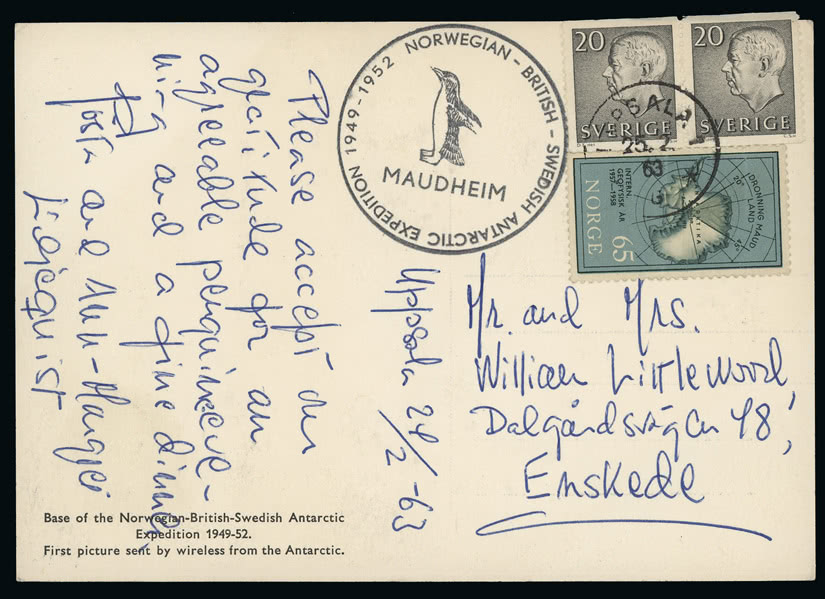 Please accept our
gratitude for an
agreeable penguineve-
ning and a fine dinner,
Gösta and Ann-Margret
Liljequist
Uppsala 24/2 -63
NORWEGIAN - BRITISH - SWEDISH ANTARCTIC EXPEDITION 1949-1952
MAUDHEIM
20
SVERIGE
20
SVERIGE
25. 2
63
INTERN.
GEOFYSISK ÅR
1957-1958
NORGE
65
DRONNING MAUD
LAND
20°
45°
Mr. and Mrs.
William Littlewood,
Dalgårdsvägen 48,
Enskede
Base of the Norwegian-British-Swedish Antarctic
Expedition 1949-52.
First picture sent by wireless from the Antarctic.